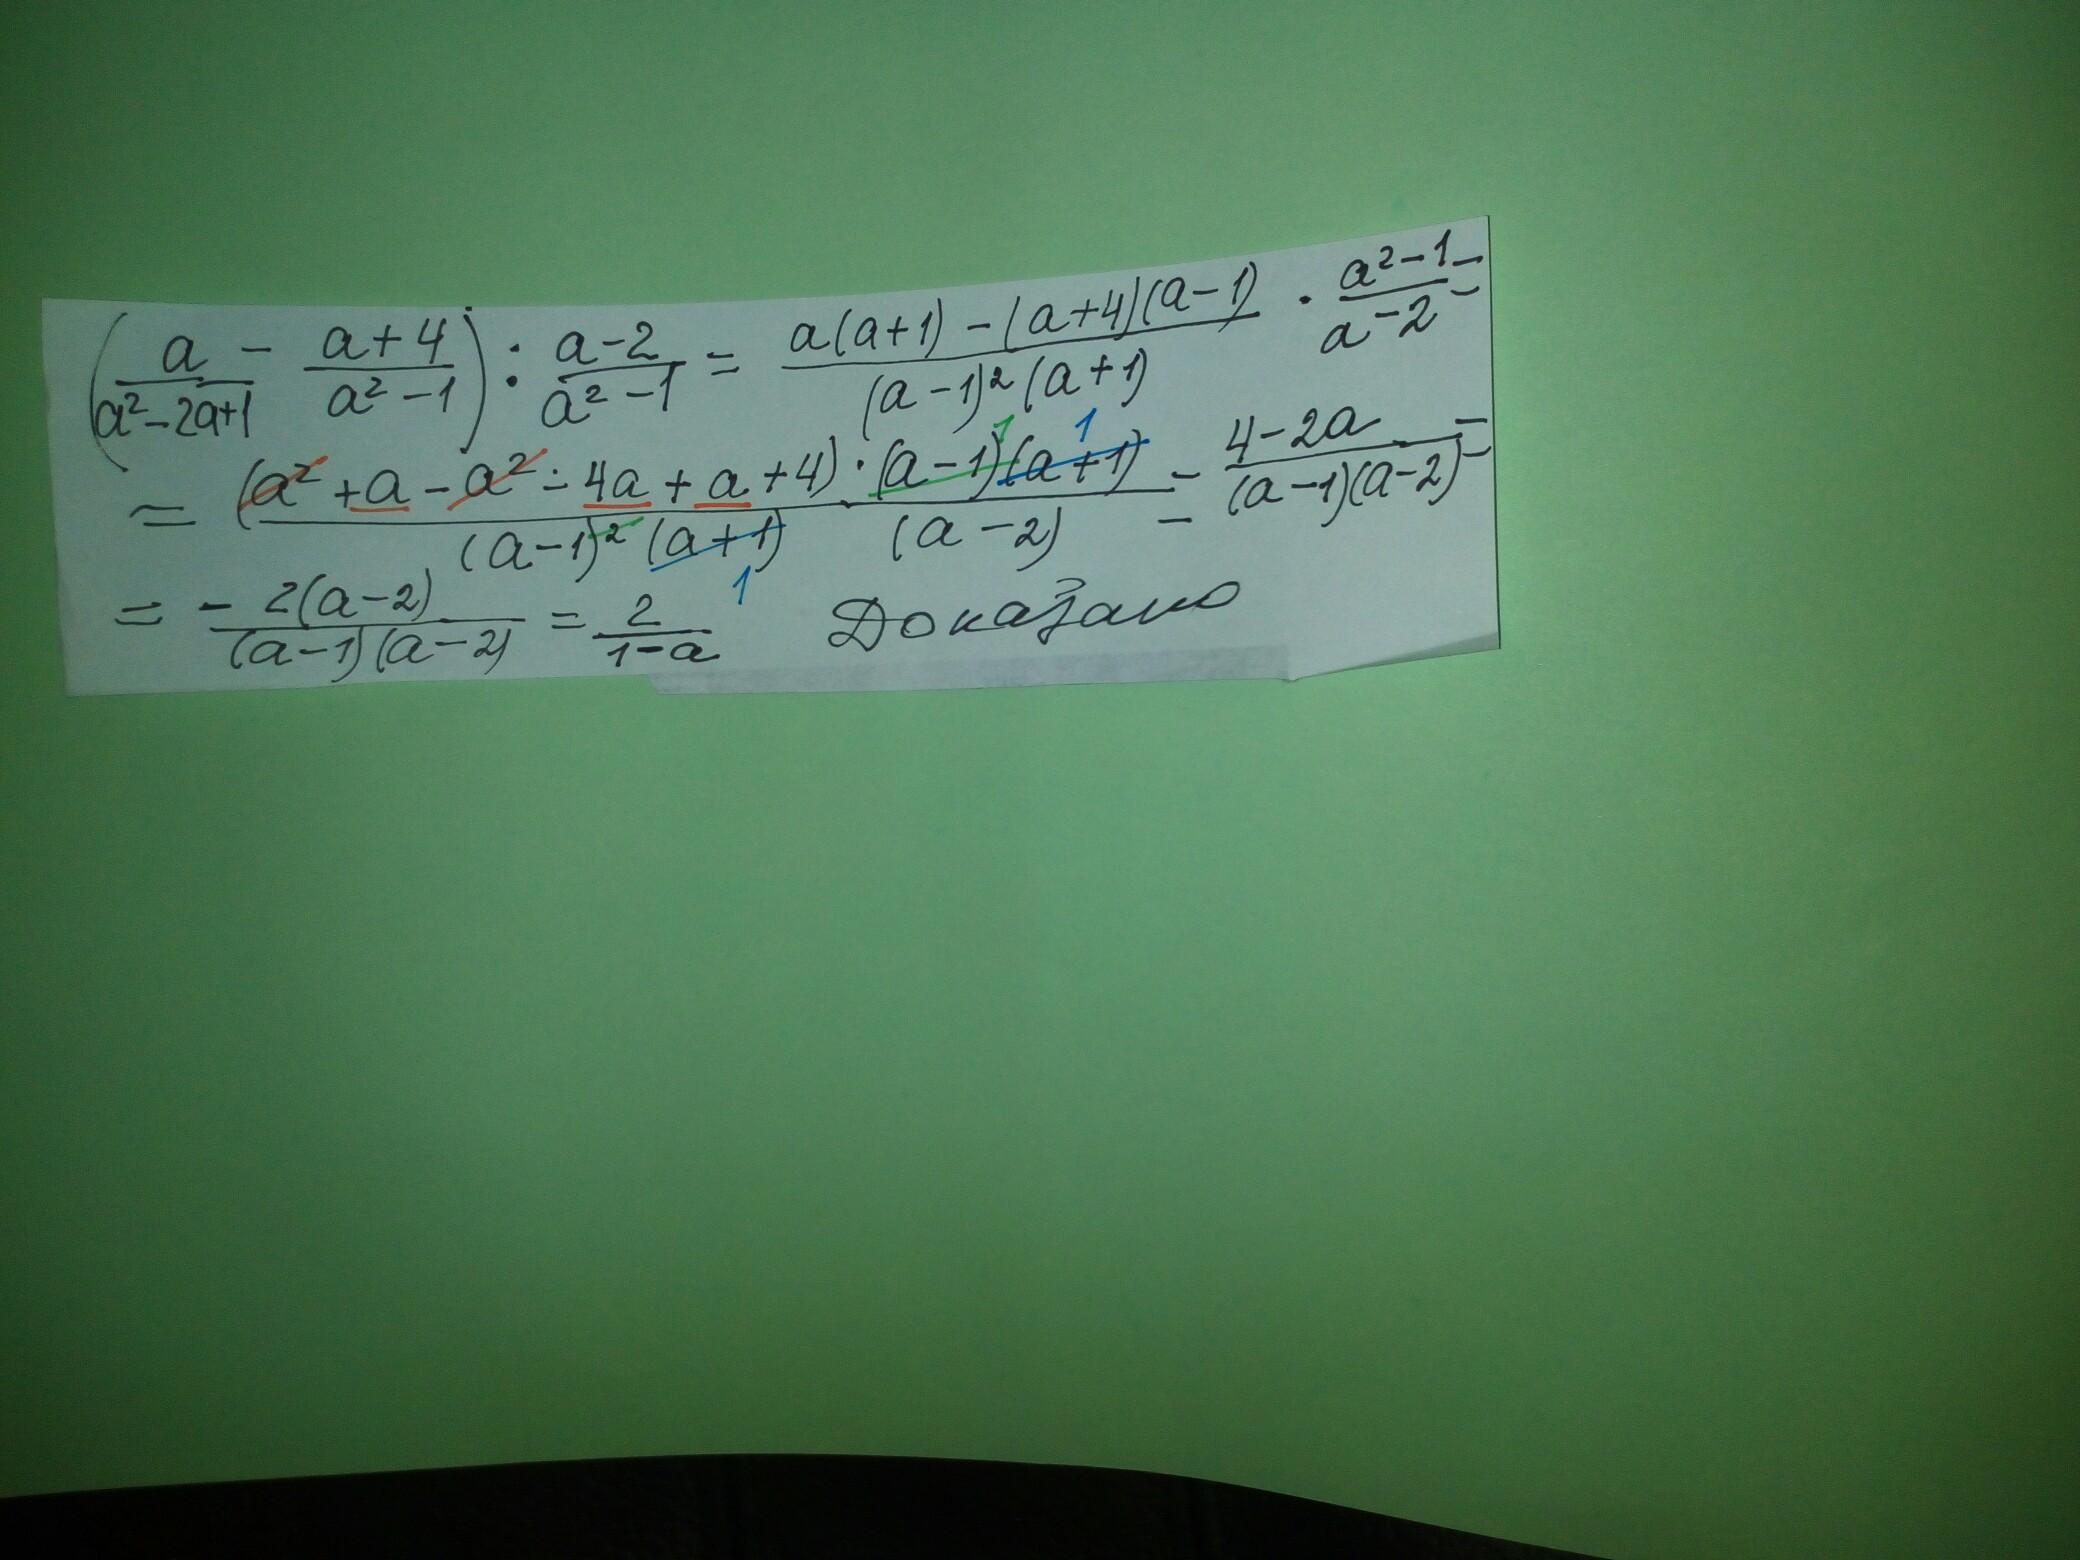 (a/(a²-2a+1) - (a+4)/(a²-1)) : (a-2)/(a²-1) = (a(a+1)-(a+4)(a-1))/((a-1)²(a+1)) · (a²-1)/(a-2) =
= ((a²+a-a²-4a+a+4)·(a-1)(a+1))/((a-1)²(a+1) (a-2)) = (4-2a)/((a-1)(a-2)) =
= - 2(a-2)/((a-1)(a-2)) = 2/(1-a) Доказано